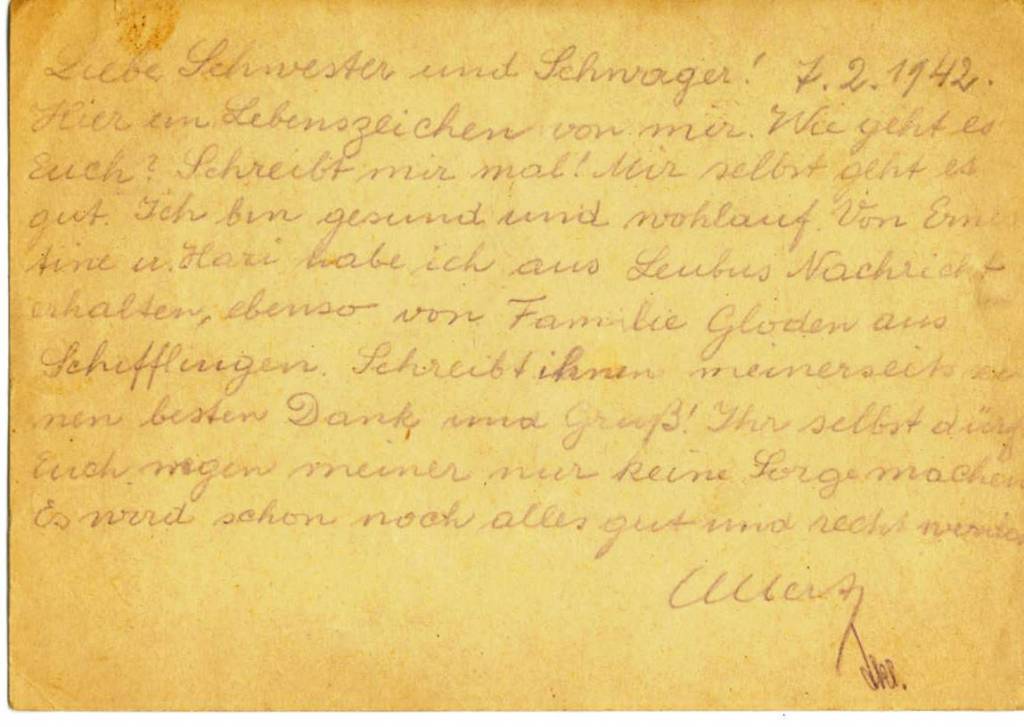 Liebe Schwester und Schwager! 7.2.1942.
Hier ein Lebenszeichen von mir. Wie geht es
Euch? Schreibt mir mal! Mir selbst geht es
gut. Ich bin gesund und wohlauf. Von Erne
stine u. Hari habe ich aus Leubus Nachricht
erhalten, ebenso von Familie Gloden aus
Schifflingen. Schreibt ihnen meinerseits ei
nen besten Dank und Gruß! Ihr selbst dürft
Euch wegen meiner nur keine Sorge machen
Es wird schon noch alles gut und recht werden
Albert